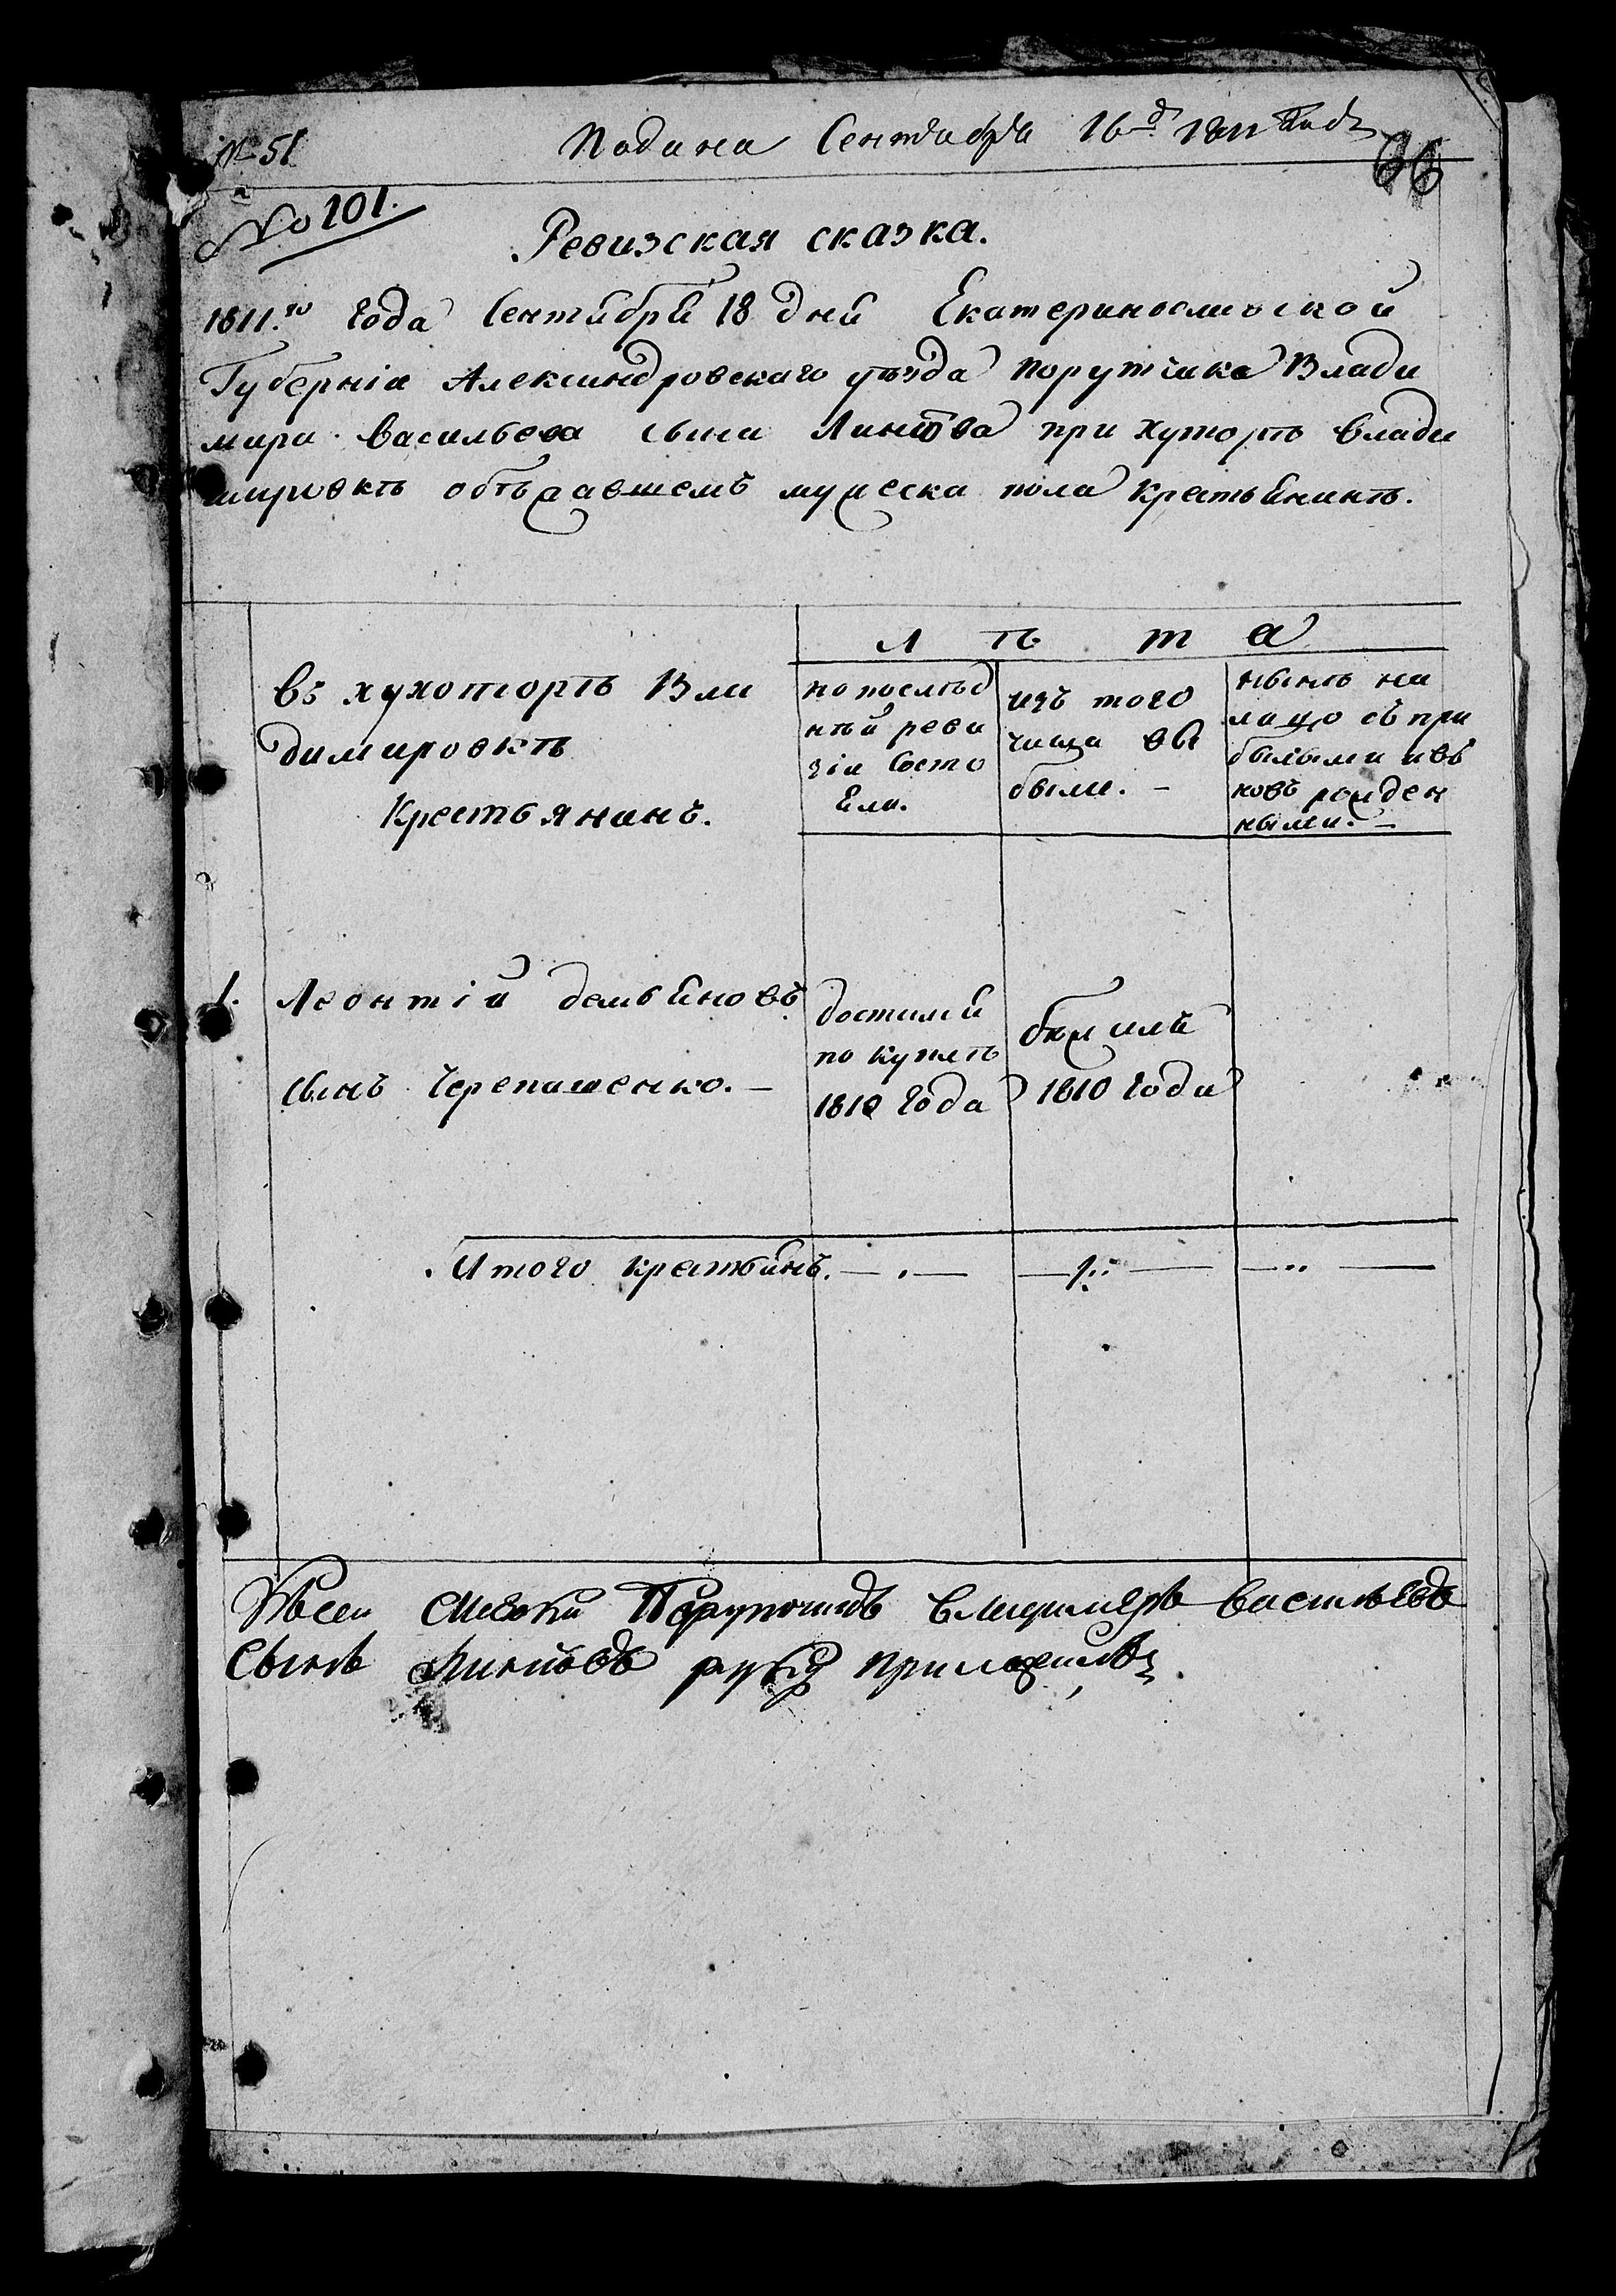 № 51
Подана Сентября 16 д 1811 года
66
№ 101.
Ревизская сказка.
1811.го Года Сентября 18 дня Екатеринославской
Губерніи Александровскаго уѣзда порутчика Влади
мира Васильева сына Линтова при хуторѣ Влади
мировкѣ обѣжавшемъ мужеска пола крестьянинѣ.
Лѣта
въ хухоторѣ Вла
димировкѣ
Крестьянинъ.
по послѣд
нѣй реви
зіи Состо
Ели.
изъ того
числа вы
были. —
нынѣ на
лицо съ при
былыми и въ
новь рожден
ными. —
1. Леонтій демьяновъ
сынъ Черепашенко. —
достался
по куплѣ
1810 Года
бѣжалъ
1810 Года
Итого крестьянъ. — „ — — 1. — — „ —
К сей Скаски Порутчикъ Владимеръ Васильевъ
Сынъ руку приложилъ.